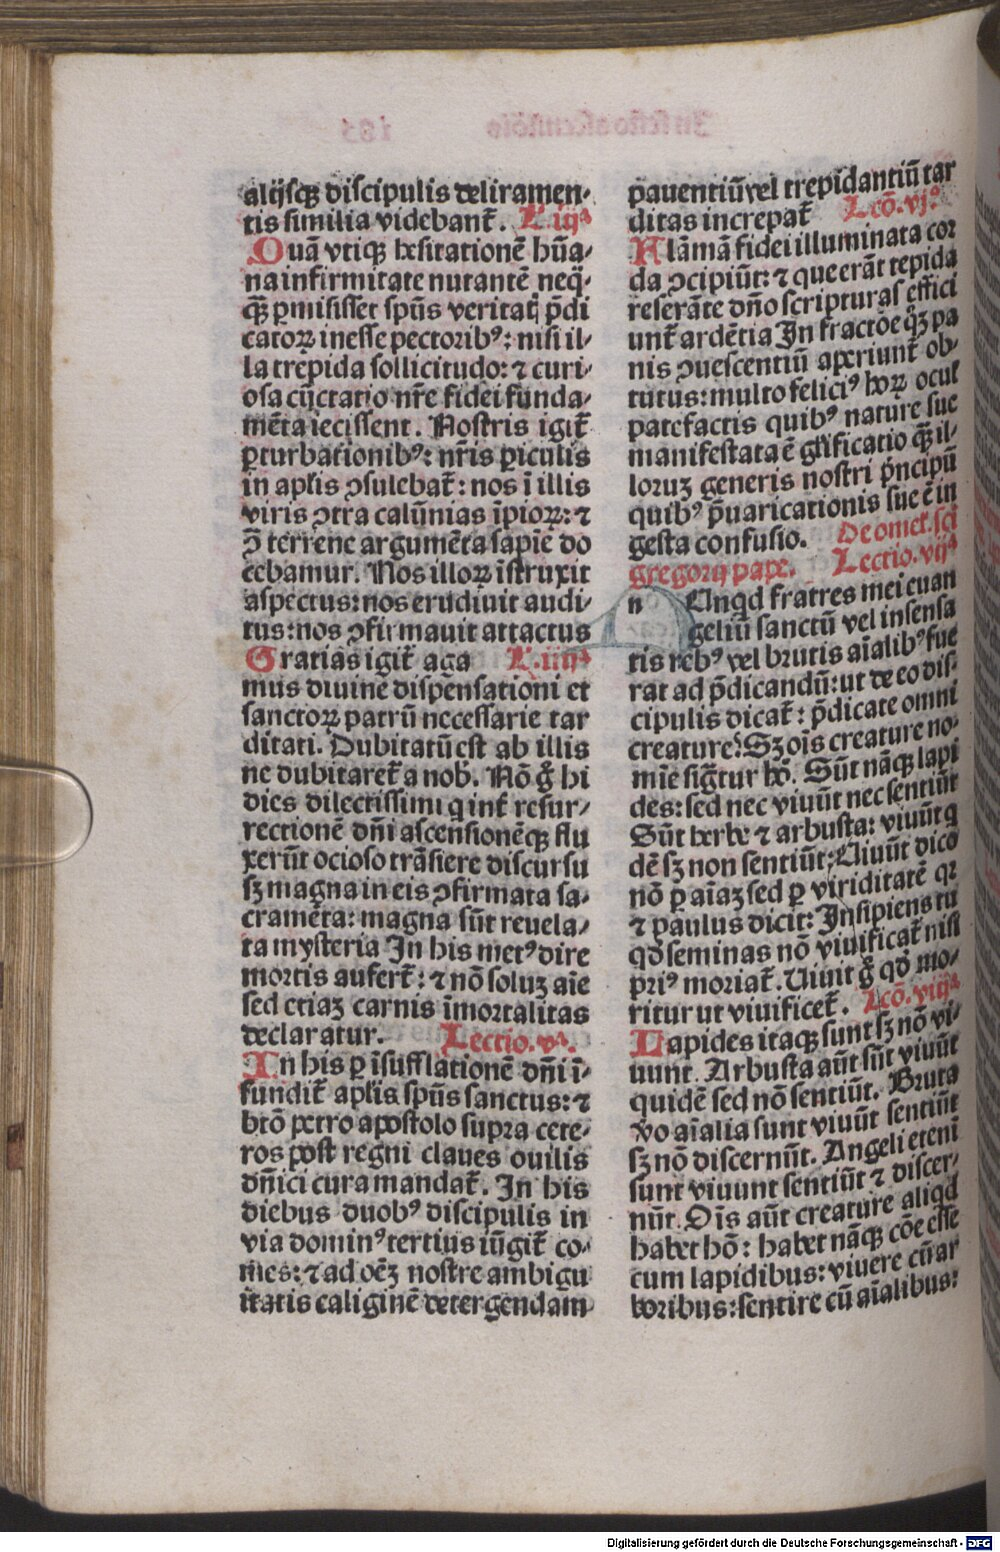 alijsqꝫ discipulis deliramen⸗
tis similia videbant᷑. L̓.iijᵃ
Quā vtiqꝫ hesitationē hūa⸗
na infirmitate nutantē neq̈⸗
qꝫ̄ ꝑmisisset spūs veritatꝭ p̄di
catorꝝ inesse pectoribꝰ: nisi il⸗
la trepida sollicitudo: ⁊ curi⸗
osa cūctatio nr̄e fidei funda⸗
mēta iecissent. Nostris igit᷑
ꝑturbationibꝰ: nr̄is ꝑiculis
in apl̄is ꝯsulebat᷑: nos ī illis
viris ꝯtra calūnias īpiorꝝ: ⁊
ꝯ̄ terrene argumēta sapīe do
cebamur. Nos illorꝝ īstruxit
aspectus: nos erudiuit audi⸗
tus: nos ꝯfirmauit attactus
Gratias igit᷑ aga L̓.iiijᵃ
mus diuine dispēsationi et
sanctorꝝ patrū necessarie tar
ditati. Dubitatū est ab illis
ne dubitaret᷑ a nob̄. Nō gͦ hi
dies dilectissimi q̇ int᷑ resur⸗
rectionē dn̄i ascensionēqꝫ flu
xerūt ocioso trāsiere discursu
sꝫ magna in eis ꝯfirmata sa⸗
cramēta: magna sūt reuela⸗
ta mysteria In his metꝰ dire
mortis aufert᷑: ⁊ nō soluꝫ aīe
sed etiaꝫ carnis īmortalitas
declaratur. Lectio.vᵃ.
In his ꝑ īsufflationē dn̄i ī⸗
fundit᷑ apl̄is spūs sanctus: ⁊
btō petro apostolo supra cete⸗
ros post regni claues ouilis
dn̄ici cura mandat᷑. In his
diebus duobꝰ discipulis in
via dominꝰ tertius iūgit᷑ co⸗
mes: ⁊ ad oēꝫ nostre ambigu
itatis caliginē detergendam
pauentiū vel trepidantiū tar
ditas increpat᷑ Lcō.vjᵃ
Flāmā fidei illuminata cor
da ꝯcipiūt: ⁊ que erāt tepida
reserāte dn̄o scripturas effici
unt᷑ ardētia In fractōe qꝫ pa
nis ꝯuescentiū aperiunt᷑ ob⸗
tutus: multo feliciꝰ horꝝ oculꝭ
patefactis quibꝰ nature sue
manifestata ē glīficatio qꝫ̄ il⸗
loruꝫ generis nostri p̄ncipū
quibꝰ p̄uaricationis sue ē in
gesta confusio. De omel̓.sci
gregorij pape. Lectio.vijᵃ
n Unq̇d fratres mei euan
geliū sanctū vel insensa
tis rebꝰ vel brutis aīalibꝰ fue
rat ad p̄dicandū: ut de eo dis⸗
cipulis dicat᷑: p̄dicate omni
creature? Sꝫ oīs creature no⸗
mīe sigtur hō. Sūt nāqꝫ lapi
des: sed nec viuūt nec sentiūt
Sūt herbe ⁊ arbusta: viuūt q̇
dē sꝫ non sentiūt: Uiuūt dico
nō ꝑ aīaꝫ sed ꝑ viriditatē qꝛ
⁊ paulus dicit: Insipiens tu
qd̓ seminas nō viuificat᷑ nisi
priꝰ moriat᷑. Uiuit gͦ qd̓ mo⸗
ritur ut viuificet᷑. Lcō.viijᵃ
Lapides itaqꝫ sunt sꝫ nō vi⸗
uunt. Arbusta aūt sūt viuūt
quidē sed nō sentiūt. Bruta
ꝟo aīalia sunt viuūt sentiūt
sꝫ nō discernūt. Angeli etenī
sunt viuunt sentiūt ⁊ discer⸗
nūt. Oīs aūt creature aliq̇d
habet hō: habet nāqꝫ cōe esse
cum lapidibus: viuere cū ar
boribus: sentire cū aīalibus:
Digitalisierung gefördert durch die Deutsche Forschungsgemeinschaft - DFG